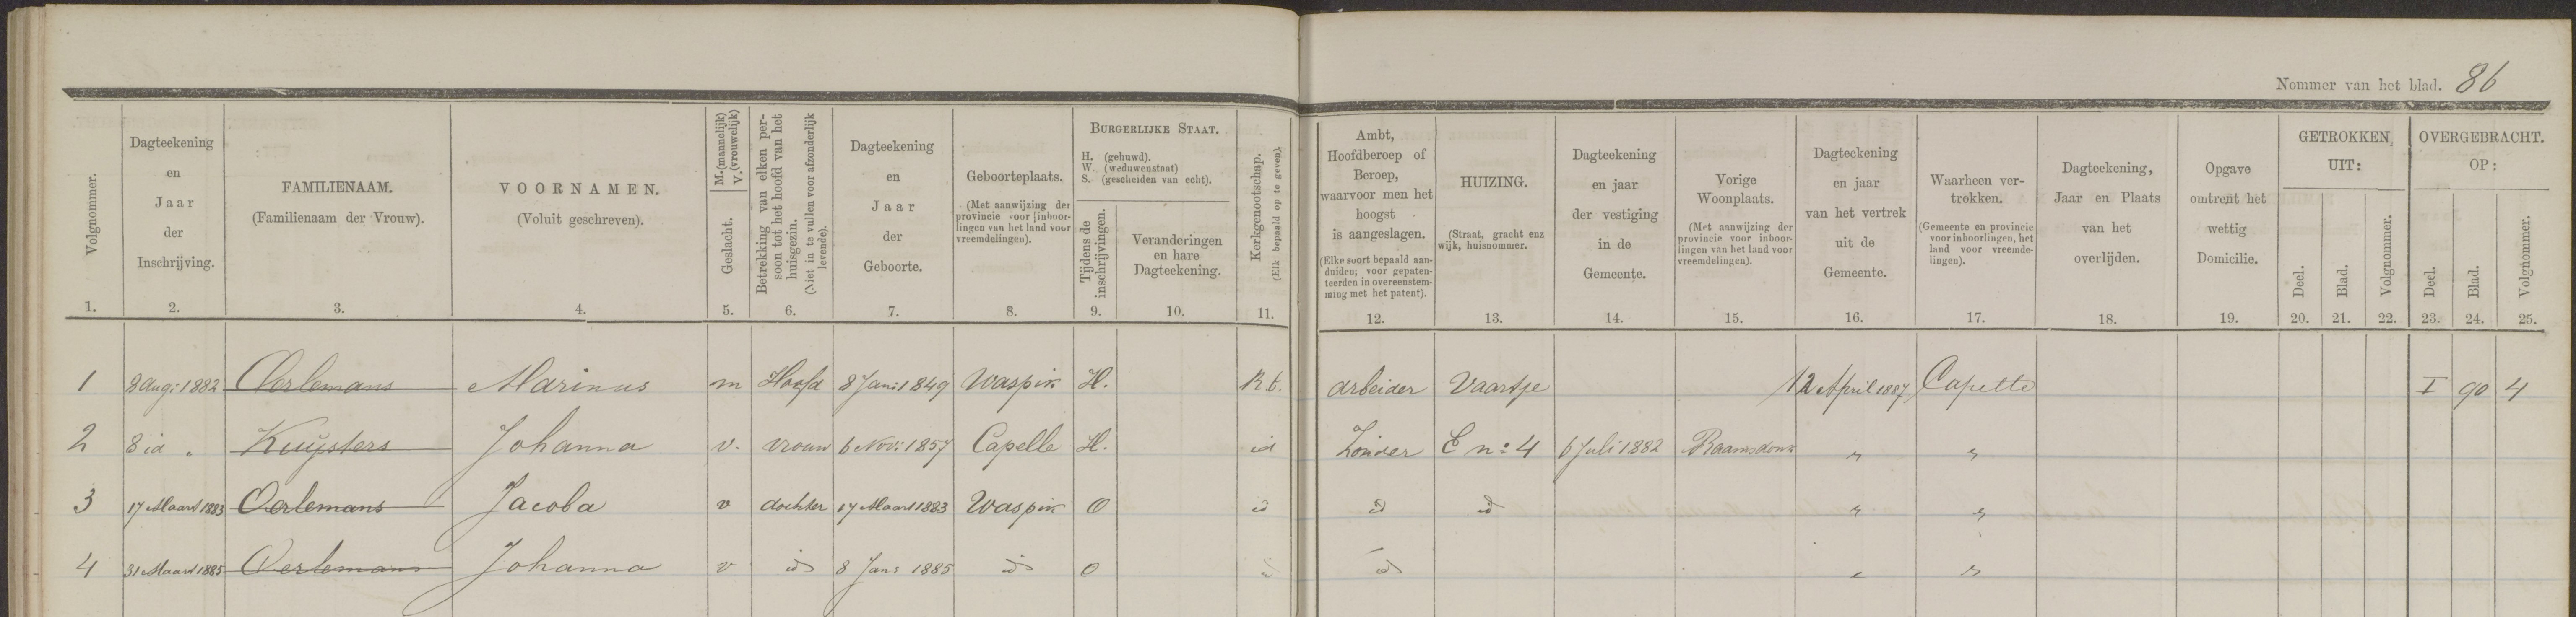 Nommer van het blad. 86
Volgnommer.
1.
Dagteekening
en
Jaar
der
Inschrijving.
2.
FAMILIENAAM.
(Familienaam der Vrouw).
3.
VOORNAMEN.
(Voluit geschreven).
4.
M. (mannelijk)
V. (vrouwelijk)
Geslacht.
5.
Betrekking van elken per-
soon tot het hoofd van het
huisgezin.
(Niet in te vullen voor afzonderlijk
levende).
6.
Dagteekening
en
Jaar
der
Geboorte.
7.
Geboorteplaats.
(Met aanwijzing der
provincie voor inboor-
lingen van het land voor
vreemdelingen).
8.
BURGERLIJKE STAAT.
H. (gehuwd).
W. (weduwenstaat)
S. (gescheiden van echt).
Tijdens de
inschrijvingen.
9.
Veranderingen
en hare
Dagteekening.
10.
Kerkgenootschap.
(Elk bepaald op te geven).
11.
Ambt,
Hoofdberoep of
Beroep,
waarvoor men het
hoogst
is aangeslagen.
(Elke soort bepaald aan-
duiden; voor gepaten-
teerden in overeenstem-
ming met het patent).
12.
HUIZING.
(Straat, gracht enz
wijk, huisnommer.
13.
Dagteekening
en jaar
der vestiging
in de
Gemeente.
14.
Vorige
Woonplaats.
(Met aanwijzing der
provincie voor inboor-
lingen van het land voor
vreemdelingen).
15.
Dagteekening
en jaar
van het vertrek
uit de
Gemeente.
16.
Waarheen ver-
trokken.
(Gemeente en provincie
voor inboorlingen, het
land voor vreemde-
lingen).
17.
Dagteekening,
Jaar en Plaats
van het
overlijden.
18.
Opgave
omtrent het
wettig
Domicilie.
19.
GETROKKEN
UIT:
Deel.
20.
Blad.
21.
Volgnommer.
22.
OVERGEBRACHT.
OP:
Deel.
23.
Blad.
24.
Volgnommer.
25.
1 8 Aug: 1882 Oerlemans Marinus m Hoofd 8 Jan: 1849 Waspik H. R k. arbeider Vaartje 12 April 1887 Capelle I 90 4
2 8 id " Kuijsters Johanna v. vrouw 6 Nov: 1857 Capelle H. id Zonder E n: 4 6 Juli 1882 Raamsdonk " "
3 17 Maart 1883 Oerlemans Jacoba v dochter 17 Maart 1883 Waspik O id id id " "
4 31 Maart 1885 Oerlemans Johanna v id 8 Jan: 1885 id O id id " "